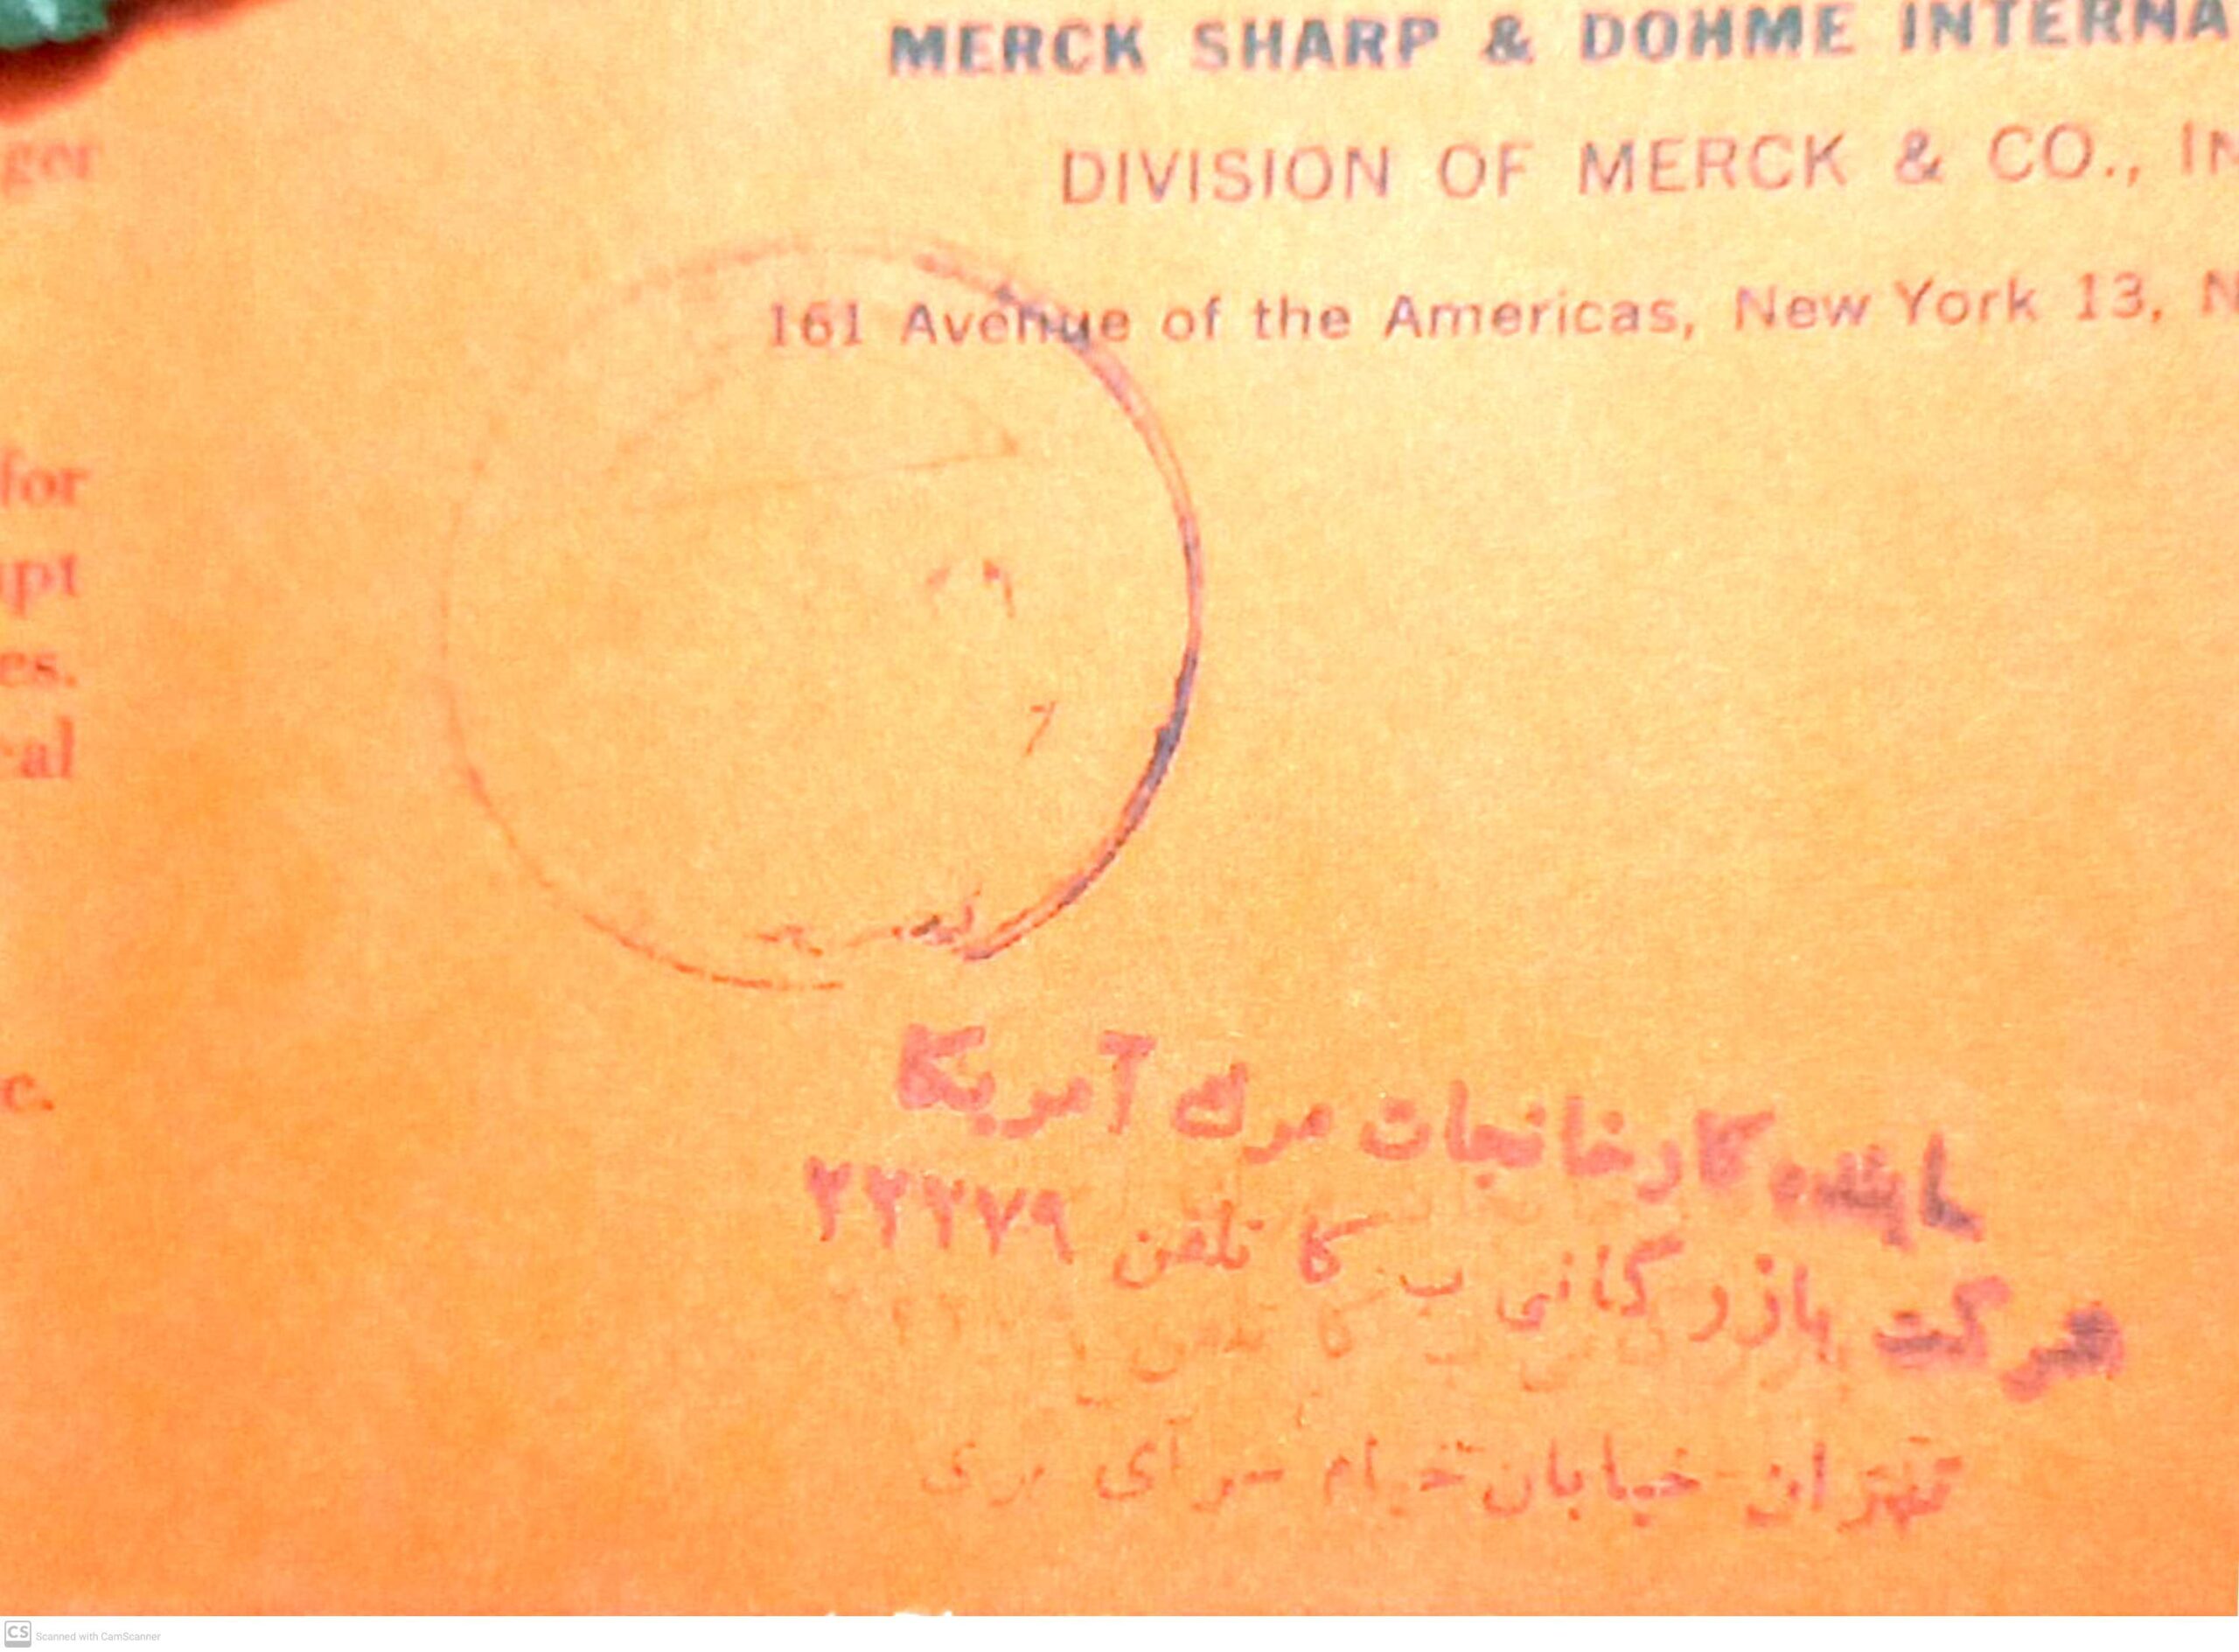 MERCK SHARP & DOHME INTERNA
DIVISION OF MERCK & CO., IN
161 Avenue of the Americas, New York 13, N
ger
for
pt
es.
cal
c.
نماینده کارخانجات مرک آمریکا
شرکت بازرگانی ب کا تلفن ۲۲۲۷۹
تهران خیابان خیام سرآی
CS Scanned with CamScanner